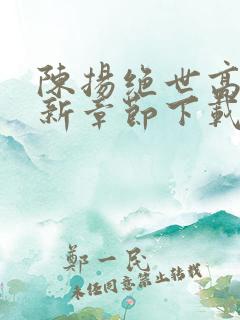 陳揚絕世高
新章節下載
鄭一民
未經同意禁止轉載